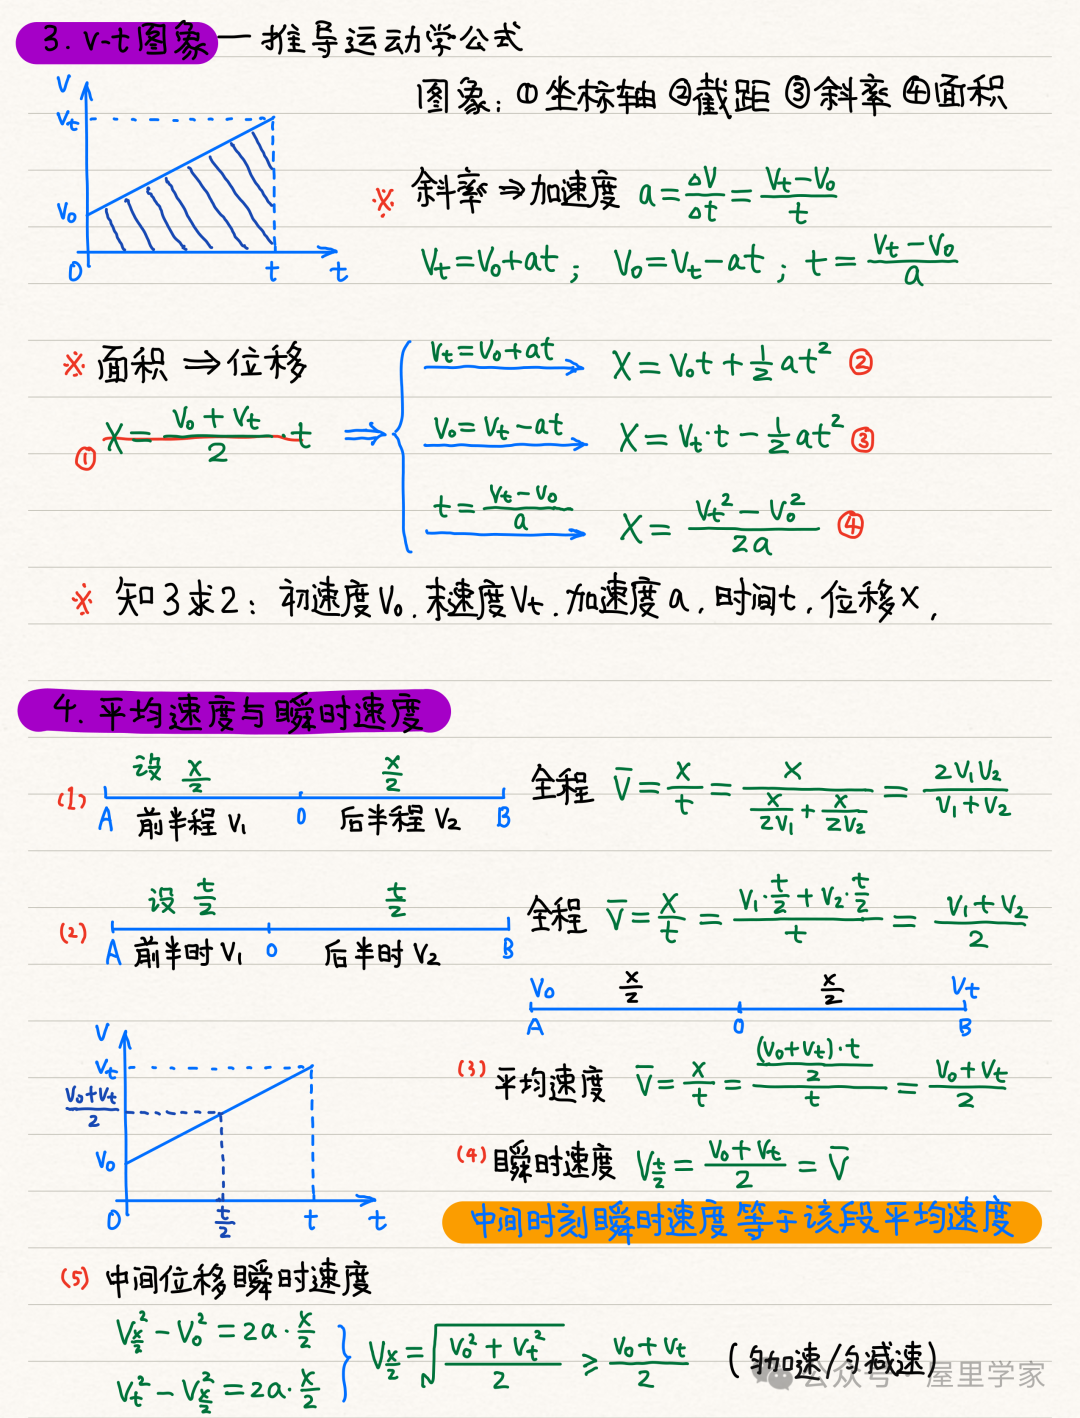 3. v-t图象—推导运动学公式
图象: ①坐标轴 ②截距 ③斜率 ④面积
V
Vt
V₀
0 t t
※ 斜率⇒加速度 a=ΔV/Δt=(Vt-V₀)/t
Vt=V₀+at; V₀=Vt-at; t=(Vt-V₀)/a
※ 面积⇒位移
① X=(V₀+Vt)/2·t ⇒
Vt=V₀+at → X=V₀t+½at² ②
V₀=Vt-at → X=Vt·t-½at² ③
t=(Vt-V₀)/a → X=(Vt²-V₀²)/2a ④
※ 知3求2: 初速度V₀.末速度Vt.加速度a,时间t,位移X,
4.平均速度与瞬时速度
(1) 设 x/2 x/2
A 前半程 V₁ 0 后半程 V₂ B
全程 V̄=x/t=x/(x/2V₁+x/2V₂)=2V₁V₂/(V₁+V₂)
(2) 设 t/2 t/2
A 前半时 V₁ 0 后半时 V₂ B
全程 V̄=x/t=(V₁·t/2+V₂·t/2)/t=(V₁+V₂)/2
V₀ x/2 x/2 Vt
A 0 B
V
Vt
(V₀+Vt)/2
V₀
0 t/2 t t
(3) 平均速度 V̄=x/t=((V₀+Vt)·t/2)/t=(V₀+Vt)/2
(4) 瞬时速度 V_{t/2}=(V₀+Vt)/2=V̄
中间时刻瞬时速度等于该段平均速度
(5) 中间位移瞬时速度
V_{x/2}²-V₀²=2a·x/2
Vt²-V_{x/2}²=2a·x/2
V_{x/2}=√((V₀²+Vt²)/2) ⩾ (V₀+Vt)/2 (匀加速/匀减速)
公众号·屋里学家